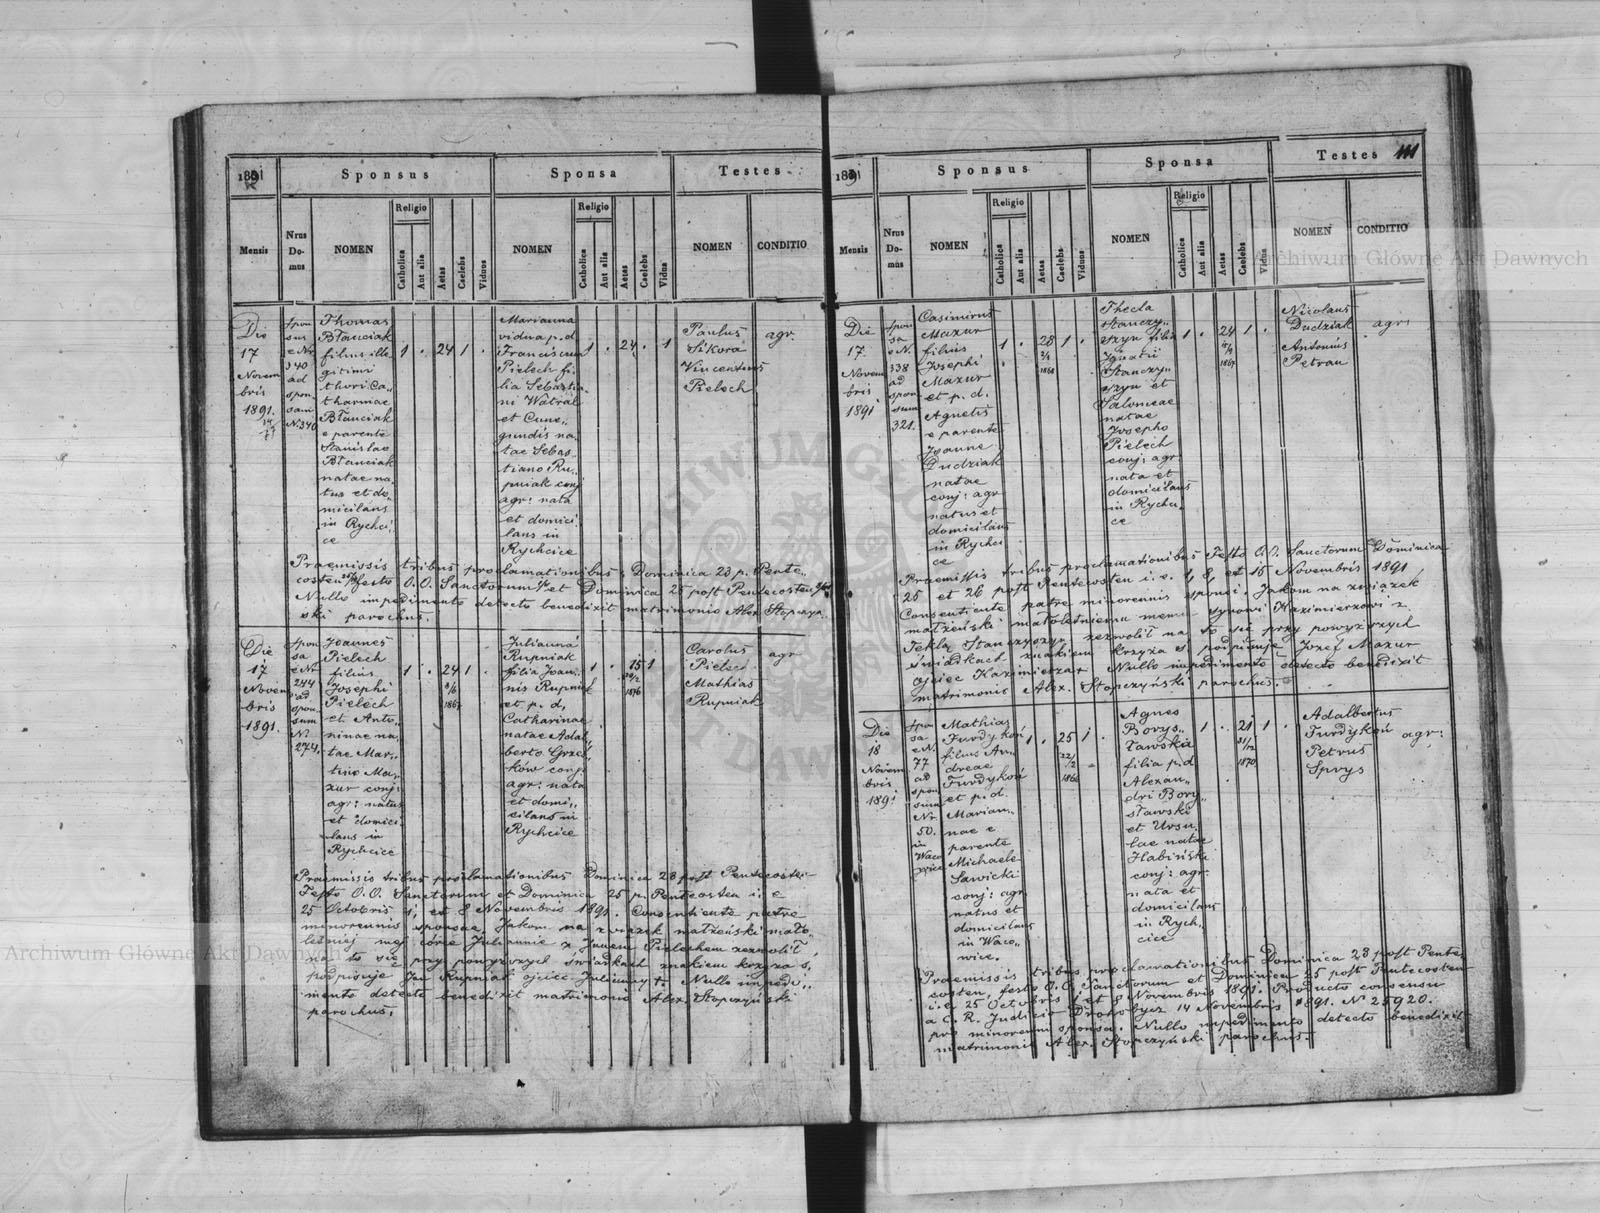 1891
Sponsus
Sponsa
Testes
Mensis
Nrus Do-mus
NOMEN
Religio
Catholica
Aut alia
Aetas
Caelebs
Viduus
NOMEN
Religio
Catholica
Aut alia
Aetas
Caelebs
Vidua
NOMEN
CONDITIO
Die
17
Novem
bris
1891.
Spon
sus
e Nr
340
ad
spon
sam
N. 340
Thomas
Błauciak
filius ille
gitimi
thori Ca„
tharinae
Błauciak
e parente
Stanislao
Błauciak
natae na„
tus et do„
micilans
in Rychci„
ce
1 . 24 1 .
Marianna
vidua p. d.
Franciscum
Pielech fi„
lia Sebastia„
ni Watral
et Cune„
gundis na„
tae Sebas„
tiano Ru„
pniak conj.
agr: nata
et domici„
lans in
Rychcice
1 . 24 . 1
Paulus
Sikora
Vincentius
Pielech
agr.
Praemissis tribus proclamationibus, Dominica 23 p. Pente„
costen festo O.O. Sanctorum et Dominica 25 post Pentecosten
Nullo impedimento detecto benedixit matrimonio Alex. Stopczyń„
ski parochus.
Die
17
Novem
bris
1891.
Spon
sa
e Nr
244
ad
spon„
sum
N.
274.
Joannes
Pielech
filius
Josephi
Pielech
et Anto„
ninae na„
tae Mar„
tino Ma„
zur conj:
agr: natus
et domici„
lans in
Rychcice
1 . 24 1 .
3/6
1867
Julianna
Rupniak
filia Joan„
nis Rupniak
et p. d.
Catharinae
natae Adal„
berto Grześ„
ków conj:
agr: nata
et domi„
cilans in
Rychcice
1 . 15 1
1876
Carolus
Pielec
Mathias
Rupniak
agr
Praemissis tribus proclamationibus Dominica 23 post Pentecosten
Festo O.O. Sanctorum et Dominica 25 p. Pentecosten i. e
25 Octobris 1, et 8 Novembris 1891. Consentiente patre
minorennis sponsae. Jakom na związek małżeński mało„
letniej mej córce Juliannie z Janem Pielechem zezwolił,
na to się przy powyższych świadkach znakiem krzyża św.
podpisuję Jan Rupniak ojciec Julianny Nullo impedi„
mento detecto benedixit matrimonio Alex. Stopczyński
parochus.
1891
Sponsus
Sponsa
Testes
111
Mensis
Nrus Do-mus
NOMEN
Religio
Catholica
Aut alia
Aetas
Caelebs
Viduus
NOMEN
Religio
Catholica
Aut alia
Aetas
Caelebs
Vidua
NOMEN
CONDITIO
Die
17.
Novem
bris
1891
Spon
sa
e N.
338
ad
spon
sum
321.
Casimirus
Mazur
filius
Josephi
Mazur
et p. d.
Agnetis
e parente
Joanne
Dudziak
natae
conj: agr
natus et
domicilans
in Rychci
ce
1 . 23 1 .
1868
Thecla
Stanczy„
szyn filia
Ignatii
Stanczy„
szyn et
Salomeae
natae
Josepho
Pielech
conj: agr
nata et
domicilans
in Rychci„
ce
1 . 24 1 .
1867
Nicolaus
Dudziak
Antonius
Petran
agr:
Praemissis tribus proclamationibus Festo O.O. Sanctorum Dominica
25 et 26 post Pentecosten i. e. 1, 8, et 15 Novembris 1891
Consentiente patre minorennis sponsi, Jakom na związek
małżeński małoletniemu memu synowi Kazimierzowi z
Teklą Stanczyszyn zezwolił na to się przy powyższych
świadkach znakiem krzyża ś podpisuję Józef Mazur
ojciec Kazimierza Nullo impedimento detecto benedixit
matrimonio Alex. Stopczyński parochus.
Die
18
Novem
bris
1891
Spo
sa
e N.
77
ad
spon
sum
Nr
50.
in
Waco
wice
Mathias
Furdykoń
filius An„
dreae
Furdykoń
et p. d.
Marian„
nae e
parente
Michaele
Sawicki
conj: agr
natus et
domicilans
in Waco„
wice.
1 . 25 1 .
22/2
1866
Agnes
Borys„
ławska
filia p. d
Alexan„
dri Bory„
sławski
et Ursu„
lae natae
Habiński
conj: agr.
nata et
domicilans
in Rych„
cice
1 . 21 1 .
31/12
1870
Adalbertus
Furdykoń
Petrus
Sprys
agr:
Praemissis tribus proclamationibus Dominica 23 post Pente
costen, festo O.O. Sanctorum et Dominica 25 post Pentecosten
i. e 25 Octobris 1 et 8 Novembris 1891. Producto consensu
a C. R. Judicio Drohobycz 14 Novembris 1891. N 25920.
pro minorenni sponsa. Nullo impedimento detecto benedixit
matrimonio Alex. Stopczyński parochus.
Archiwum Główne Akt Dawnych
Archiwum Główne Akt Dawnych